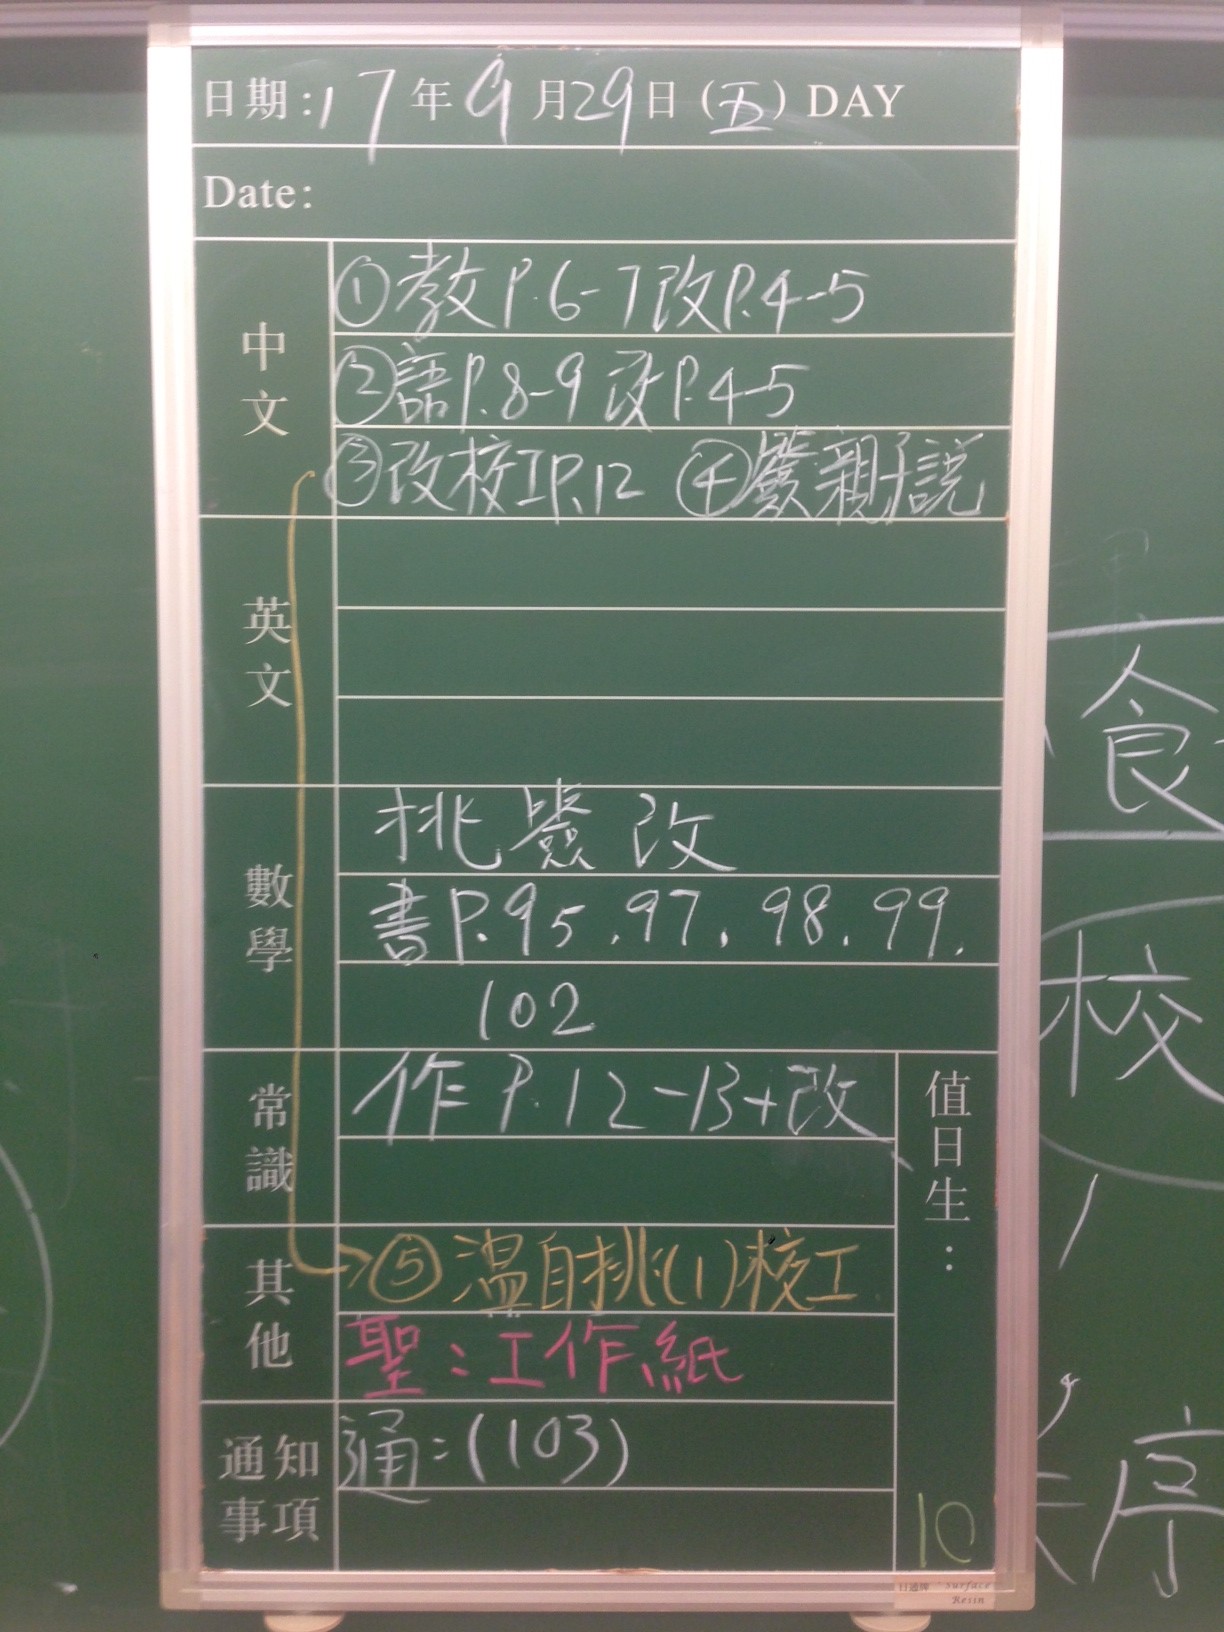 日期:17年9月29日(五) DAY
Date:
中文
①教P.6-7改P.4-5
②語P.8-9改P.4-5
③改校工P.12 ④ 親子說
英文
數學
挑 改
書P.95.97.98.99.
102
常識
作P.12-13+改
值日生:
10
其他
⑤溫自挑(1)校工
聖:工作紙
通知事項
通:(103)
食
校
序
Surface
Resin